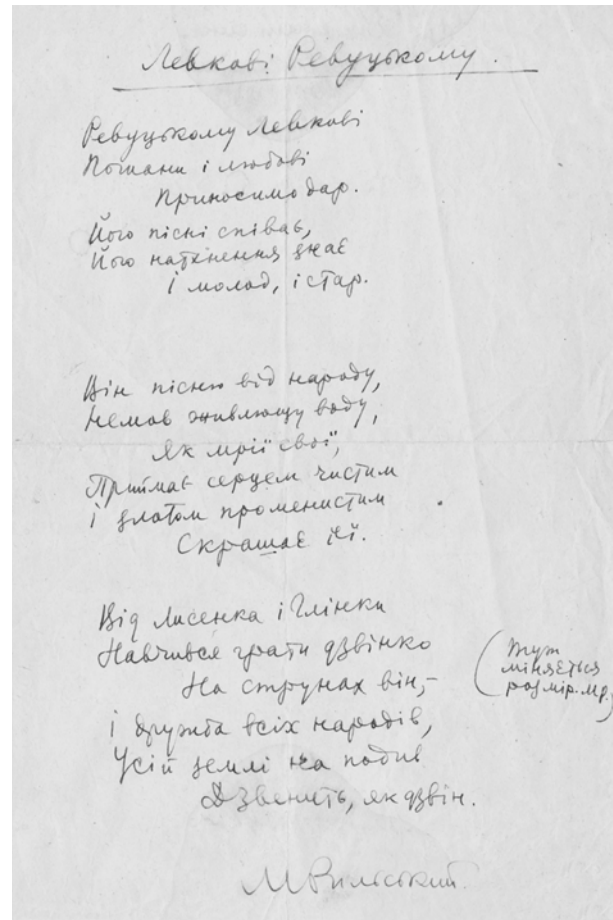 Левкові Ревуцькому.
Ревуцькому Левкові
Пошани і любові
Приносимо дар.
Його пісні співає,
Його натхнення знає
І молод, і стар.
Він пісню від народу,
Немов живлющу воду,
Як мрії свої,
Приймає серцем чистим
І златом променистим
Скрашає її.
Від Лисенка і Глінки
Навчився грати дзвінко
На струнах він,–
І дружба всіх народів,
Усій землі на подив
Дзвенить, як дзвін.
(Тут
міняється
розмір. М.Р.)
М Рильський.